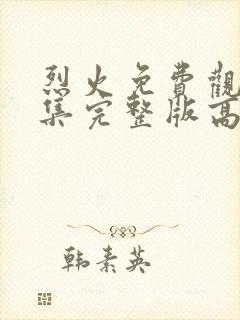 烈火免費觀
集完整版高
韩素英